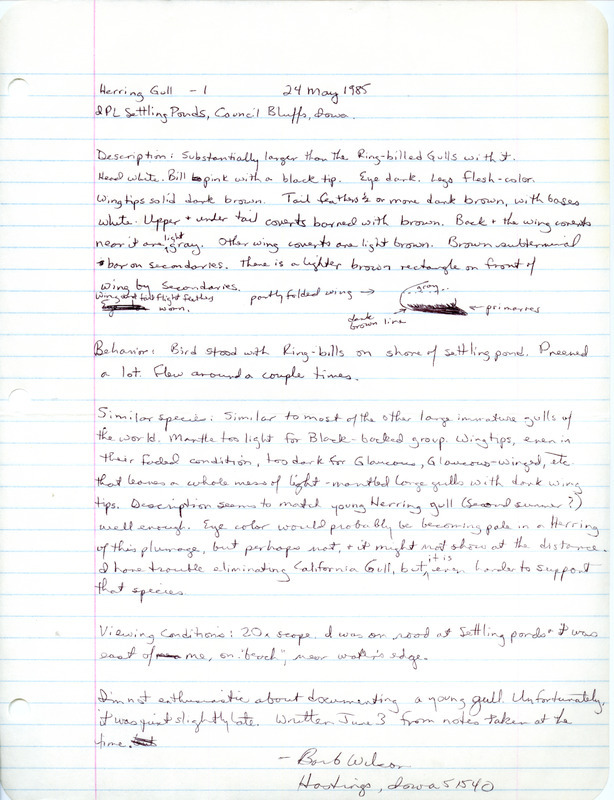 Herring Gull - 1 24 May 1985
IPL Settling Ponds, Council Bluffs, Iowa.
Description: Substantially larger than the Ring-billed Gulls with it.
Head white. Bill pink with a black tip. Eye dark. Legs flesh-color.
Wingtips solid dark brown. Tail feathers ½ or more dark brown, with bases
white. Upper + under tail coverts barred with brown. Back + the wing coverts
near it are light gray. Other wing coverts are light brown. Brown subterminal
bar on secondaries. There is a lighter brown rectangle on front of
wing by secondaries.
wing and tail flight feathers
worn.
partly folded wing →
gray
← primaries
dark
brown line
Behavior: Bird stood with Ring-bills on shore of settling pond. Preened
a lot. Flew around a couple times.
Similar species: Similar to most of the other large immature gulls of
the world. Mantle too light for Black-backed group. Wingtips, even in
their faded condition, too dark for Glaucous, Glaucous-winged, etc.
that leaves a whole mess of light-mantled large gulls with dark wing
tips. Description seems to match young Herring gull (second summer?)
well enough. Eye color would probably be becoming pale in a Herring
of this plumage, but perhaps not, + it might not show at the distance.
I have trouble eliminating California Gull, but it is even harder to support
that species.
Viewing Conditions: 20x scope. I was on road at settling ponds + it was
east of me, on "beach", near water's edge.
I'm not enthusiastic about documenting a young gull. Unfortunately,
it was just slightly late. Written June 3 from notes taken at the
time.
- Barb Wilson
Hastings, Iowa 51540